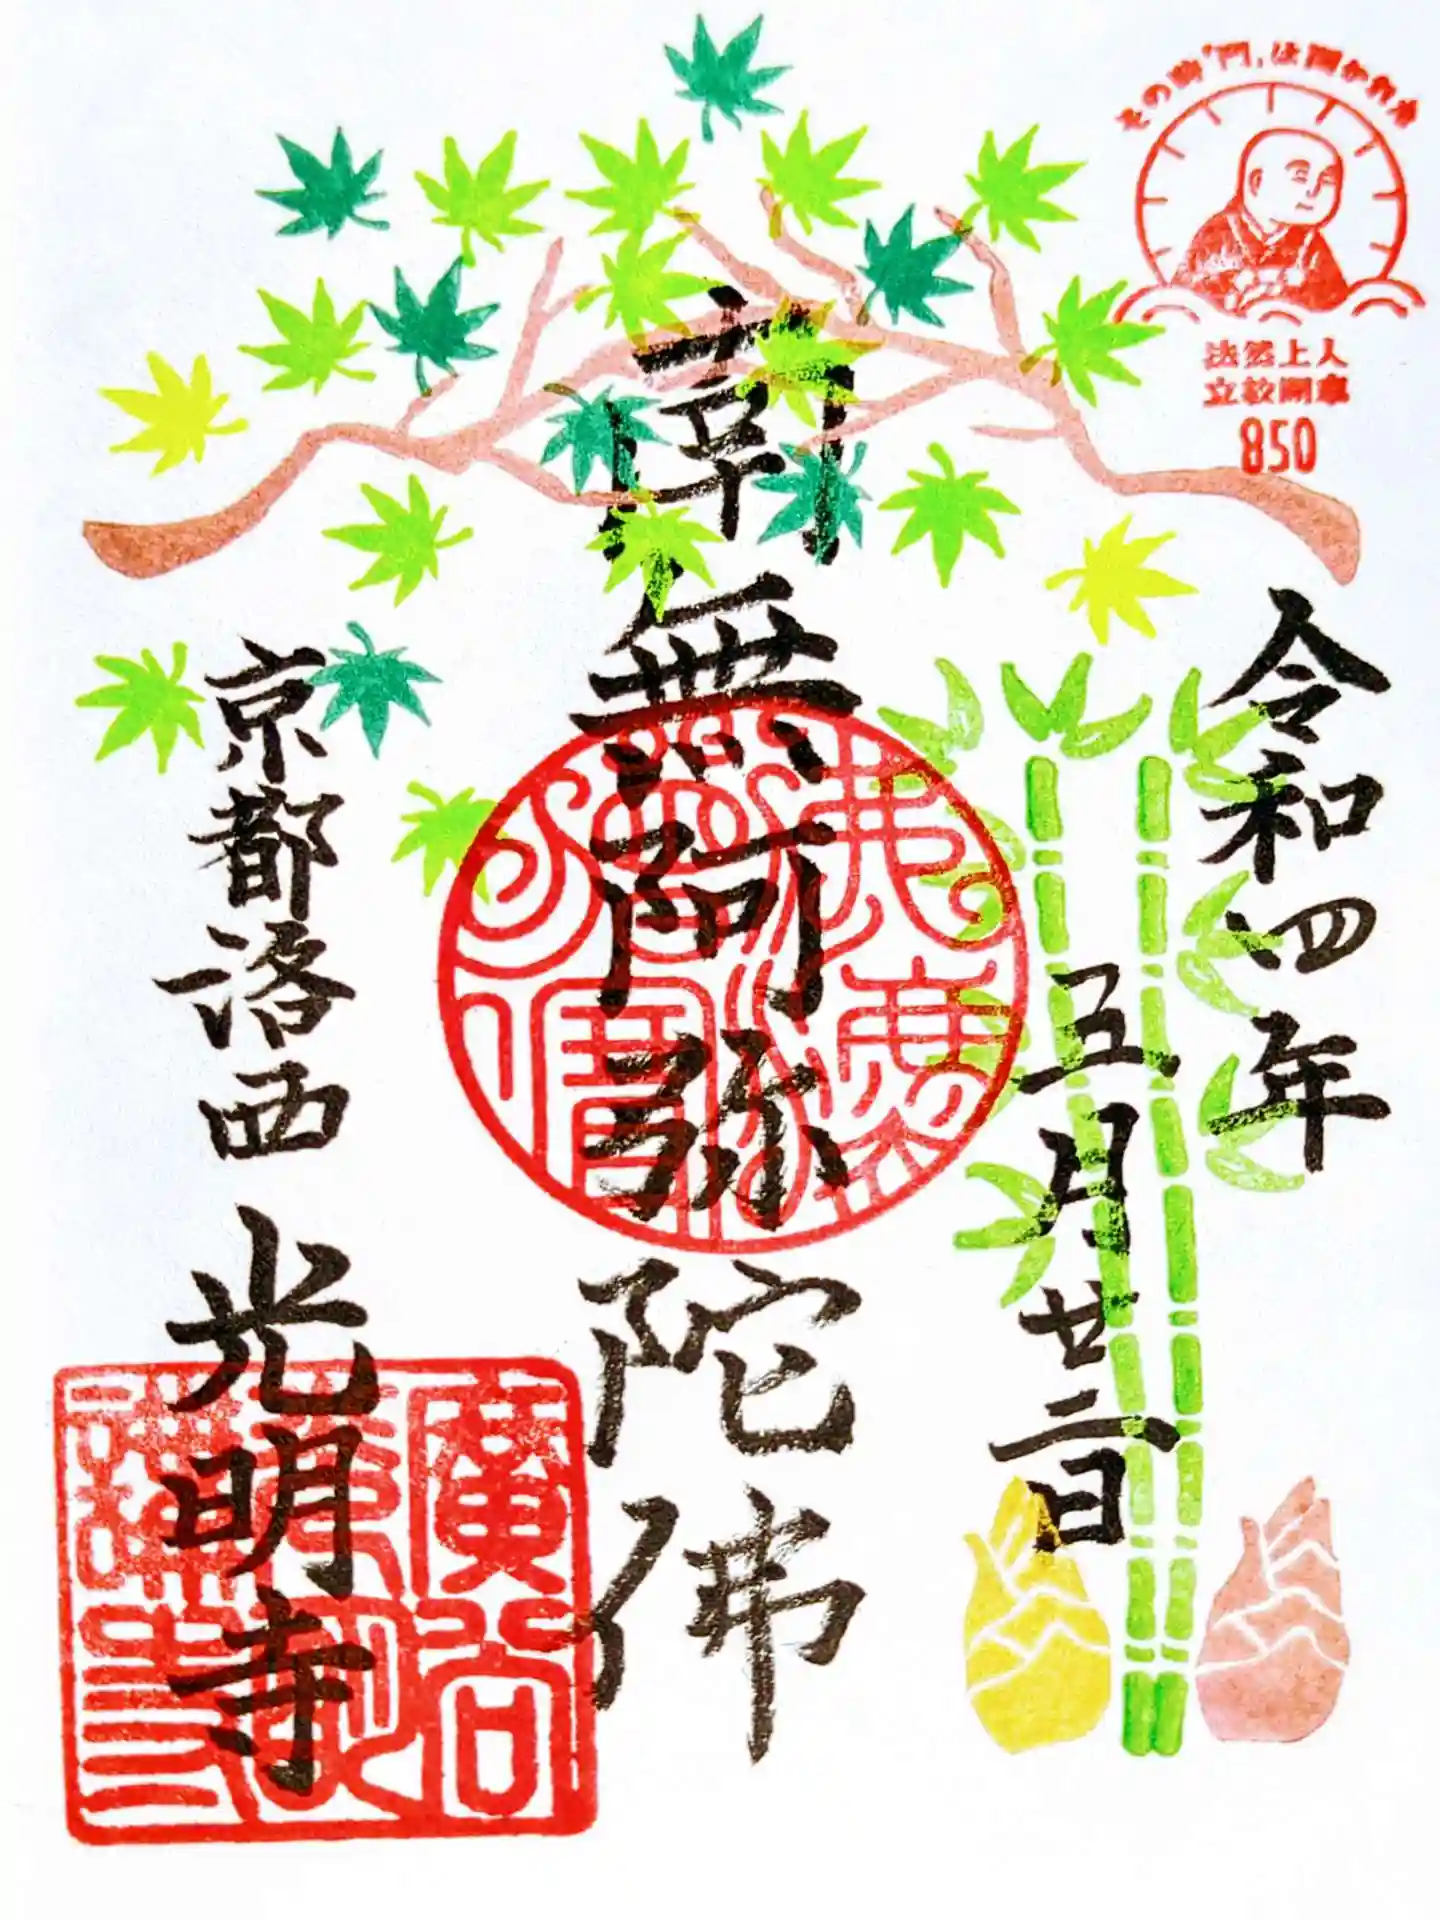 その時「門」は開かれた
法然上人
立教開宗
850
令和四年
五月廿二日
南無阿弥陀佛
京都洛西
光明寺